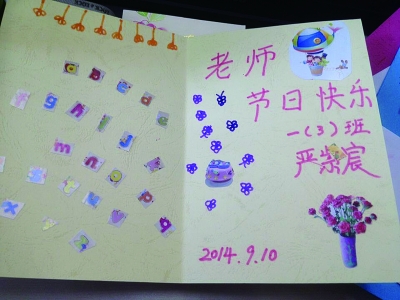 老师
节日快乐
一(3)班
严紫宸
2014.9.10